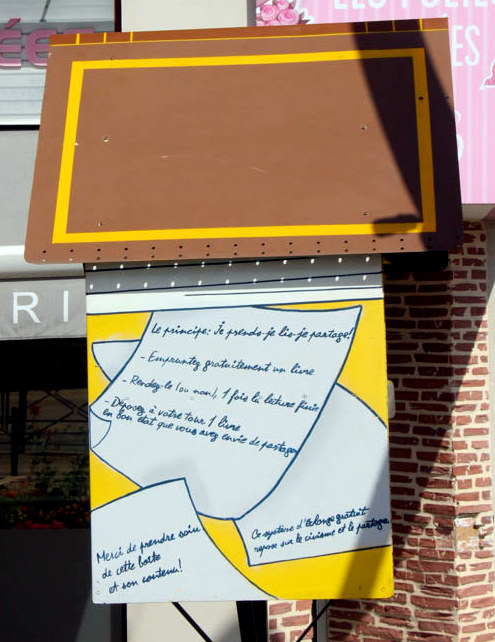 Le principe: Je prends-je lis-je partage!
- Empruntez gratuitement un livre
- Rendez-le (ou non), 1 fois la lecture finie
- Déposez à votre tour 1 livre
en bon état que vous avez envie de partager
Ce système d'échange gratuit
repose sur le civisme et le partage
Merci de prendre soin
de cette boîte
et son contenu!
RI